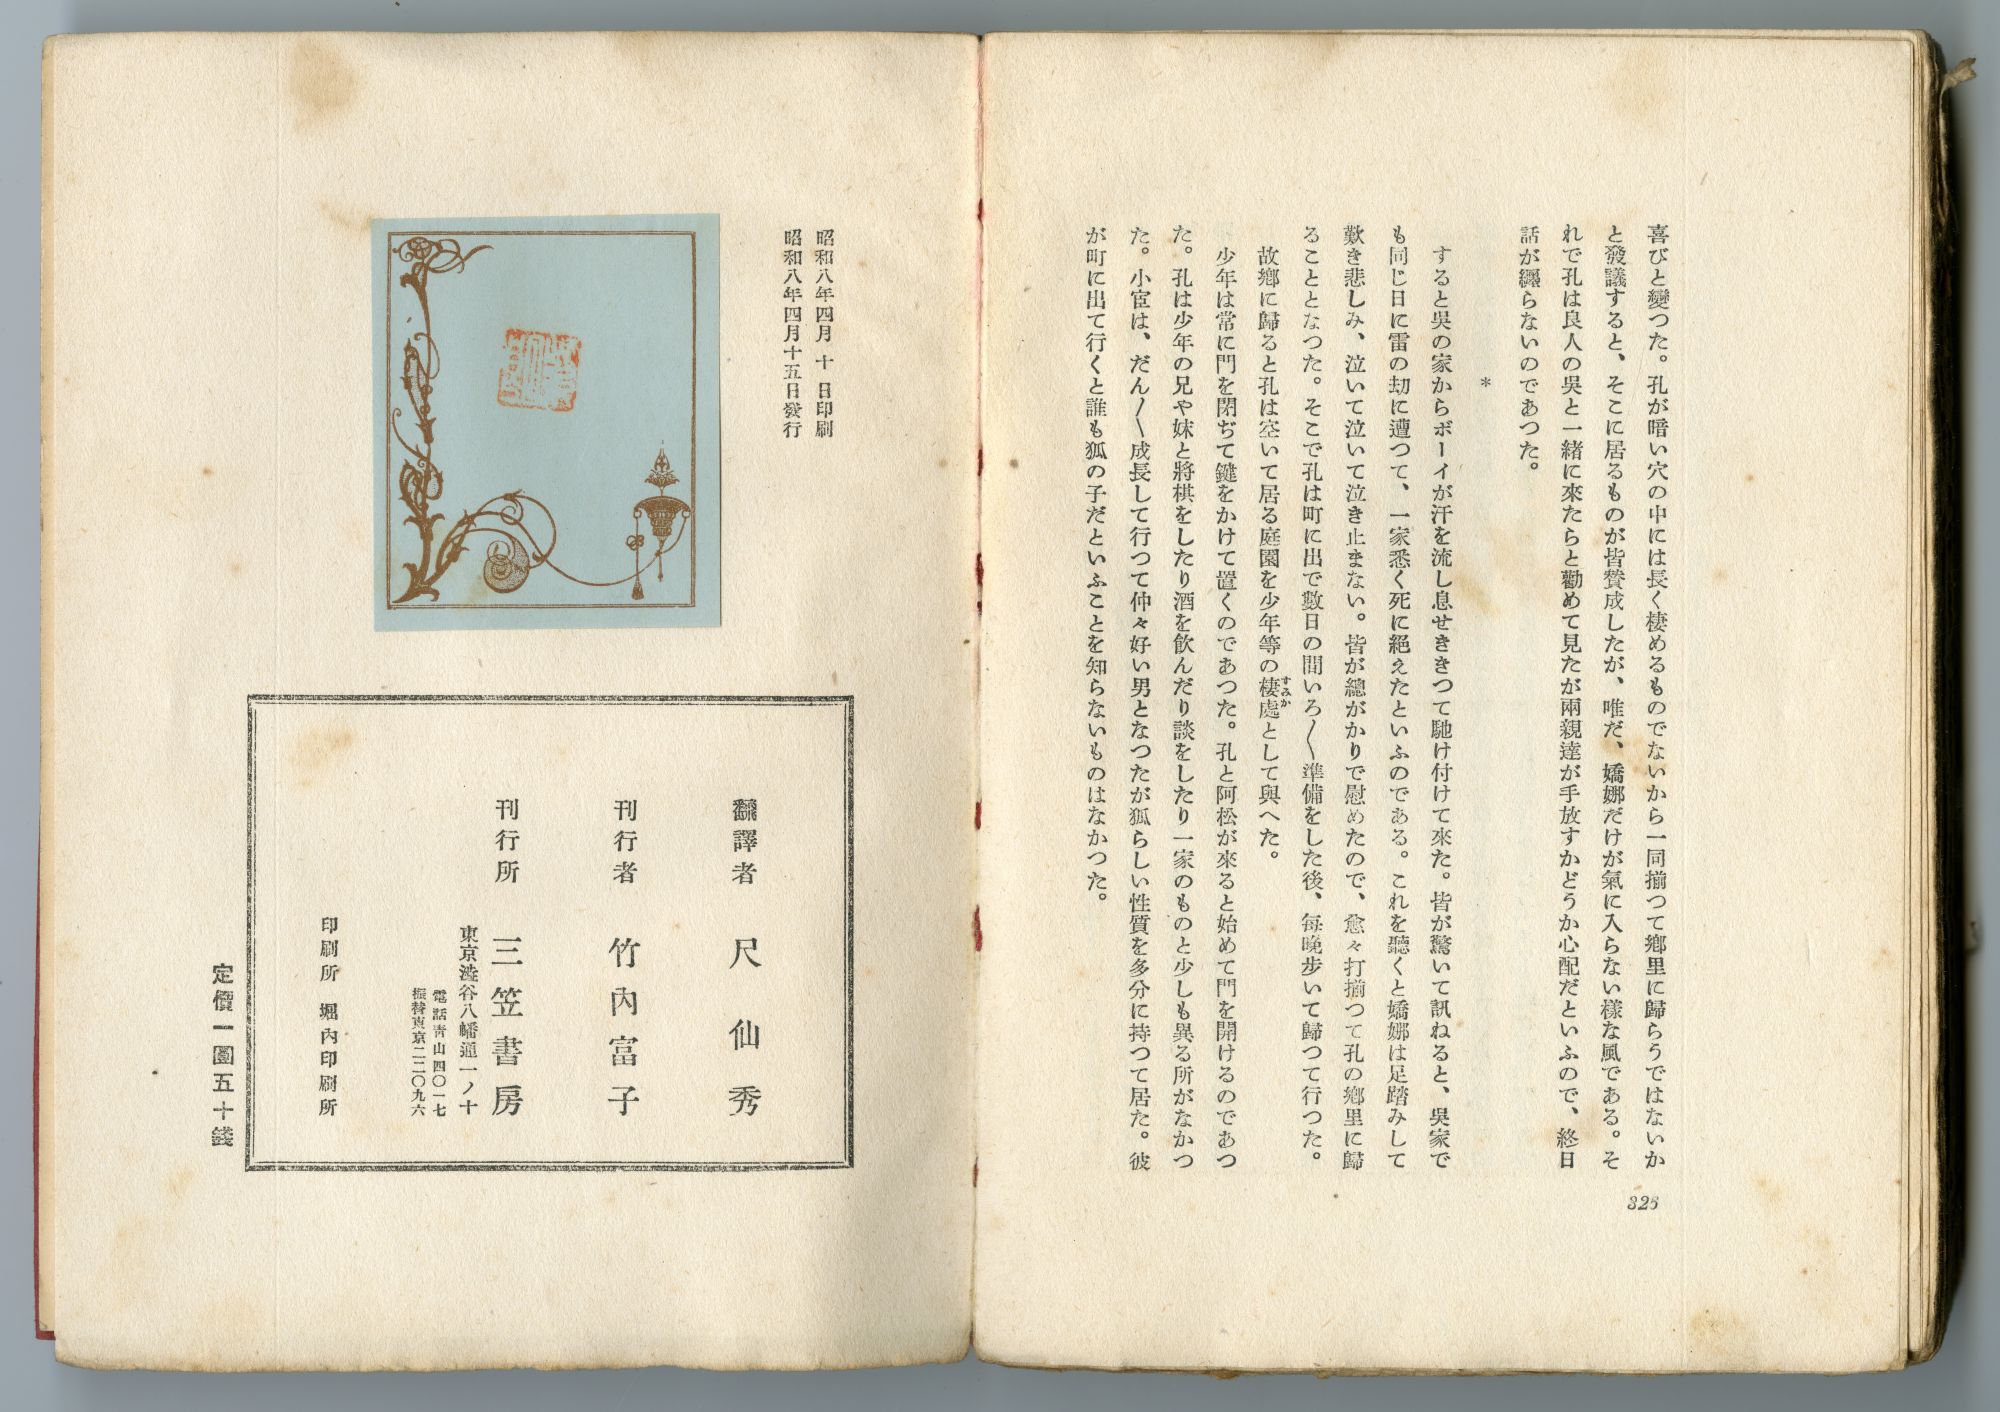 喜びと變つた。孔が暗い穴の中には長く棲めるものでないから一同揃つて鄕里に歸らうではないか
と發議すると、そこに居るものが皆賛成したが、唯だ、嬌娜だけが氣に入らない樣な風である。そ
れで孔は良人の吳と一緒に來たらと勸めて見たが兩親達が手放すかどうか心配だといふので、終日
話が纒らないのであつた。
*
すると吳の家からボーイが汗を流し息せききつて馳け付けて來た。皆が驚いて訊ねると、吳家で
も同じ日に雷の劫に遭つて、一家悉く死に絕えたといふのである。これを聽くと嬌娜は足踏みして
歎き悲しみ、泣いて泣いて泣き止まない。皆が總がかりで慰めたので、愈々打揃つて孔の鄕里に歸
ることとなつた。そこで孔は町に出で數日の間いろ〱準備をした後、每晚步いて歸つて行つた。
故鄕に歸ると孔は空いて居る庭園を少年等の棲處すみかとして與へた。
少年は常に門を閉ぢて鍵をかけて置くのであつた。孔と阿松が來ると始めて門を開けるのであつ
た。孔は少年の兄や妹と將棋をしたり酒を飮んだり談をしたり一家のものと少しも異る所がなかつ
た。小宦は、だん〱成長して行つて仲々好い男となつたが狐らしい性質を多分に持つて居た。彼
が町に出て行くと誰も狐の子だといふことを知らないものはなかつた。
325
昭和八年四月 十 日印刷
昭和八年四月十五日發行
飜譯者 尺仙秀
刊行者 竹內富子
刊行所 三笠書房
東京澁谷八幡通一ノ十
電話靑山四〇一七
振替東京二二〇九六
印刷所 堀內印刷所
定價一圓五十錢